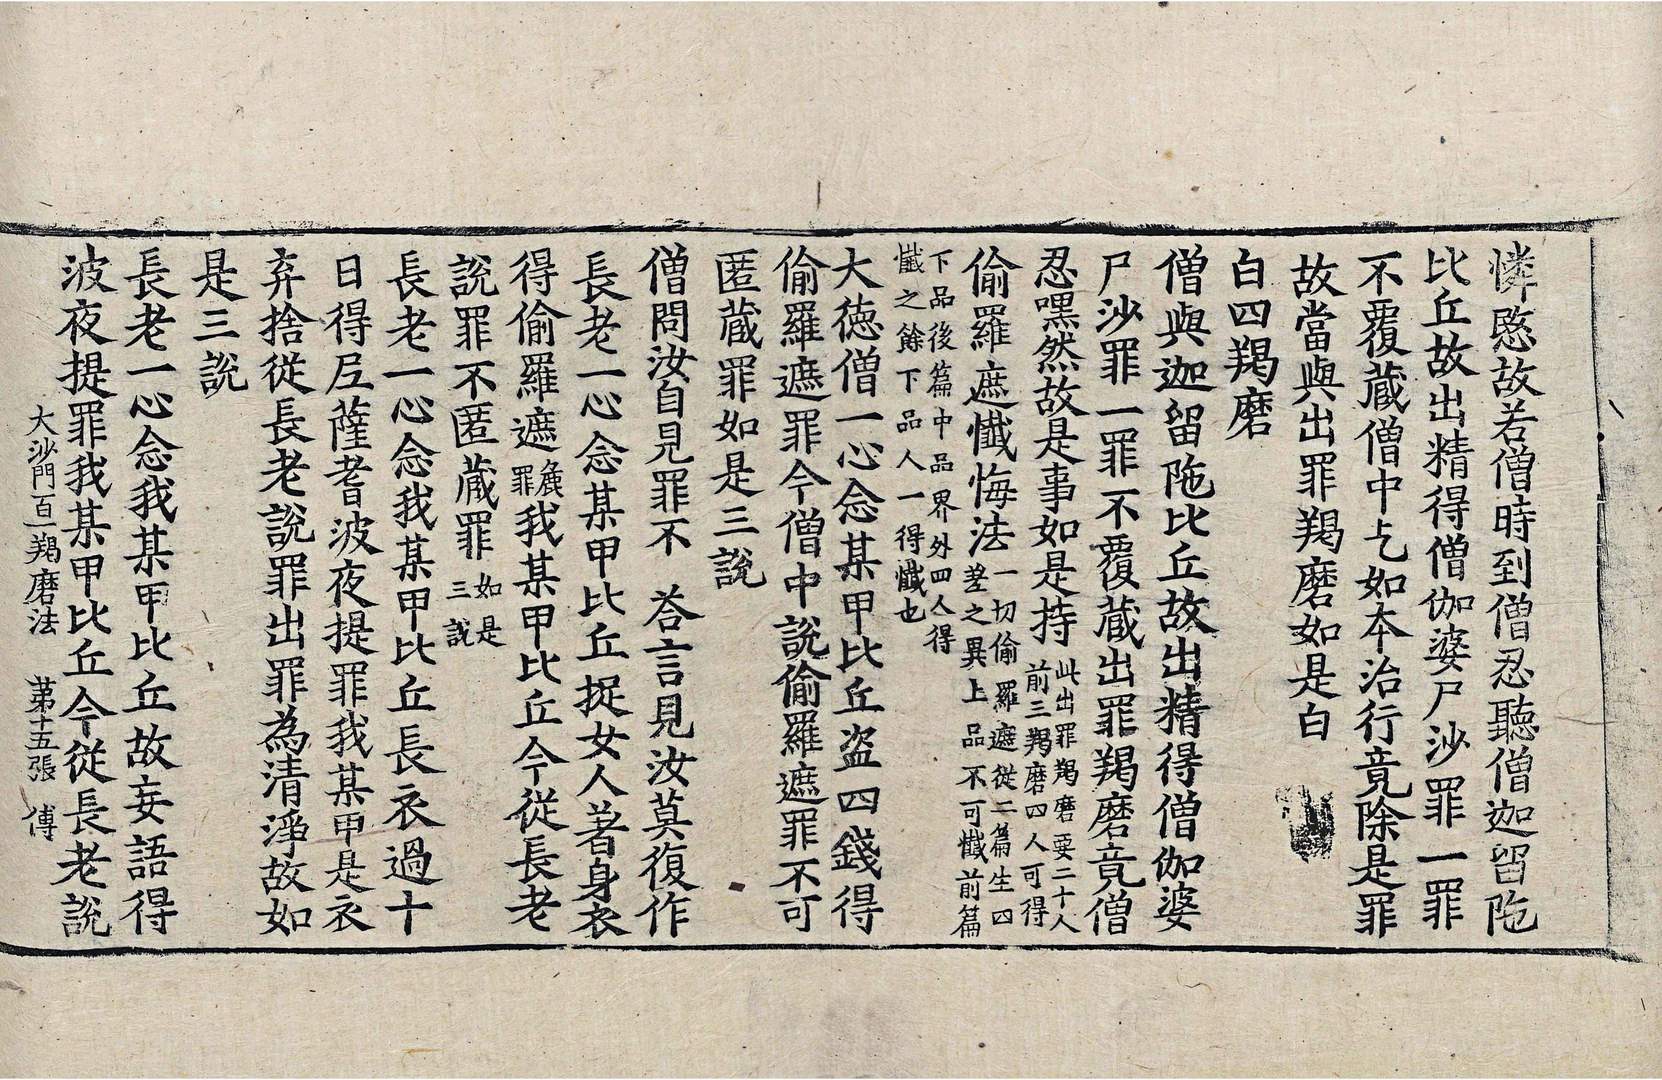 憐愍故若僧時到僧忍聽僧迦留陁
比丘故出精得僧伽婆尸沙罪一罪
不覆藏僧中乞如本治行竟除是罪
故當與出罪羯磨如是白
白四羯磨
僧與迦留陁比丘故出精得僧伽婆
尸沙罪一罪不覆藏出罪羯磨竟僧
忍嘿然故是事如是持此出罪羯磨要二十人前三羯磨四人可得
偷羅遮懺悔法一切偷羅遮從二篇生四差之異上品不可懺前篇
下品後篇中品界外四人得懺之餘下品人一得懺也
大德僧一心念某甲比丘盜四錢得
偷羅遮罪今僧中說偷羅遮罪不可
匿蔵罪如是三說
僧問汝自見罪不 荅言見汝莫復作
長老一心念某甲比丘捉女人著身衣
得偷羅遮麁罪我某甲比丘今從長老
說罪不匿蔵罪如是三說
長老一心念我某甲比丘長衣過十
日得尼薩耆波夜提罪我某甲是衣
弃捨從長老說罪出罪為清淨故如
是三說
長老一心念我某甲比丘故妄語得
波夜提罪我某甲比丘今從長老說
大沙門百一羯磨法 第十五張 傅